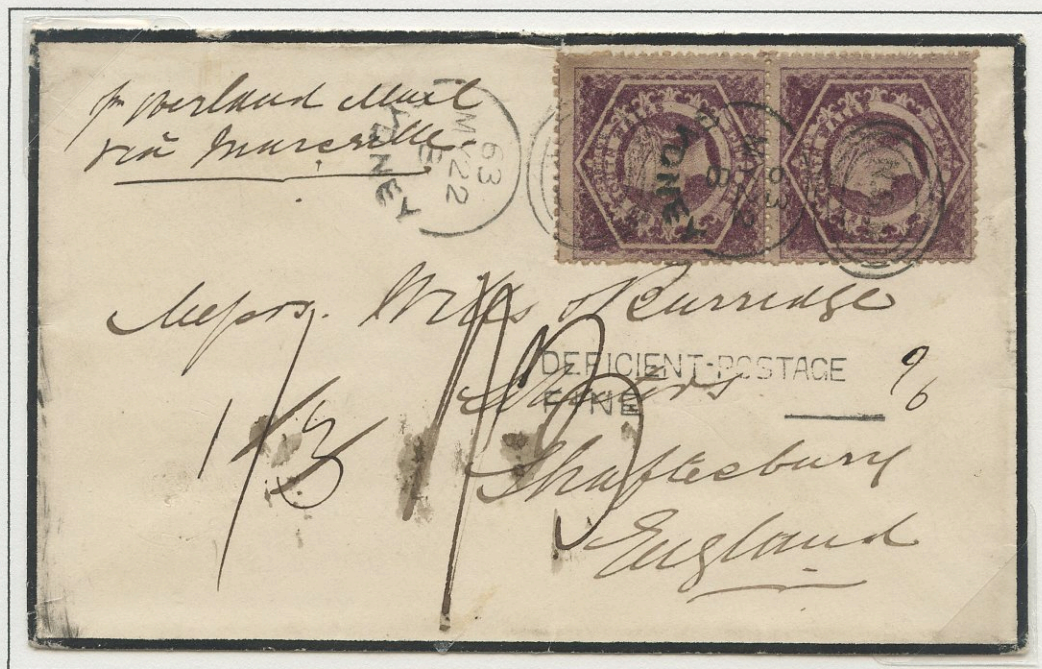 pr Overland Mail
via Marseille
SYDNEY
MY 22
63
SYDNEY
MY 22
63
Messrs. Wills & Burridge
DEFICIENT-POSTAGE
9/6
FINE
Solicitors
1/3
1/3
Shaftesbury
England